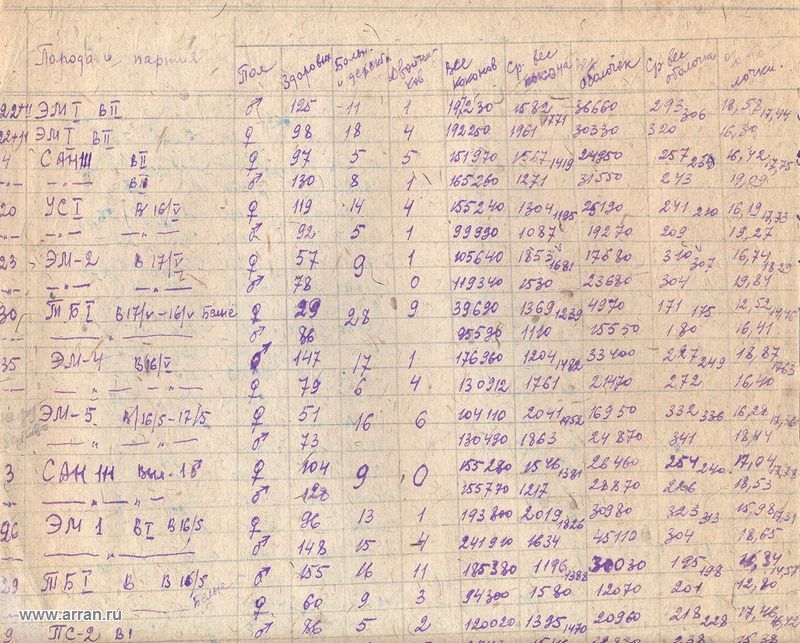 Порода и партия Пол Здоровых Больн. и Двойников Вес коконов Ср. вес кокона оболочек Ср. вес оболочки
22+11 ЭМ I В II ♂ 125 11 1 197230 1582 1771 36660 293 306 18,58 17,44
22+11 ЭМ I В II ♀ 98 18 4 192250 1961 30330 320
4 САНIII В II ♀ 97 5 5 151970 1567 1419 24950 257 16,42
—"— —"— В II ♂ 130 8 1 165260 1271 31550 243 19,09
20 УС I В 16/V ♀ 119 14 4 155240 1304 1195 25190 241 16,19 17,73
—"— —"— —"— ♂ 92 5 1 99990 1087 19270 209 19,27
23 ЭМ-2 В 17/V ♀ 57 9 1 105640 1853 1681 17680 310 307 16,74 18,29
—"— —"— —"— ♂ 78 0 119340 1530 23680 304 19,84
30 ТБ I В 17/V-16/V Белые ♀ 29 28 9 39690 1369 1239 4970 171 175 12,52
♂ 86 1110 15550 180 16,41
35 ЭМ-4 В 16/V ♂ 147 17 1 176960 1204 1482 33400 227 249 18,87 17,63
—"— ♀ 79 6 4 130912 1761 21470 272 16,40
ЭМ-5 В/16/5-17/5 ♀ 51 16 6 104110 2041 1952 16950 332 336 16,28
—"— ♂ 73 130490 1863 24870 341
3 САН III ♀ 104 9 0 155280 1546 1381 26460 254 240 17,04 17,78
—"— ♂ 128 155770 1217 28870 226 18,53
96 ЭМ 1 В I В 16/5 ♀ 96 13 1 193800 2019 1826 30980 323 313 15,98 17,31
—"— ♂ 148 15 4 241910 1634 45110 304 18,65
29 ТБ I В В 16/5 Белые ♂ 155 16 11 185380 1196 1388 30030 195 198 14,57
♀ 60 9 3 94300 1580 12070 201 12,80
9 ПС-2 В1 ♂ 86 5 2 120020 1395 1470 20960 218 228 17,46
www.arran.ru